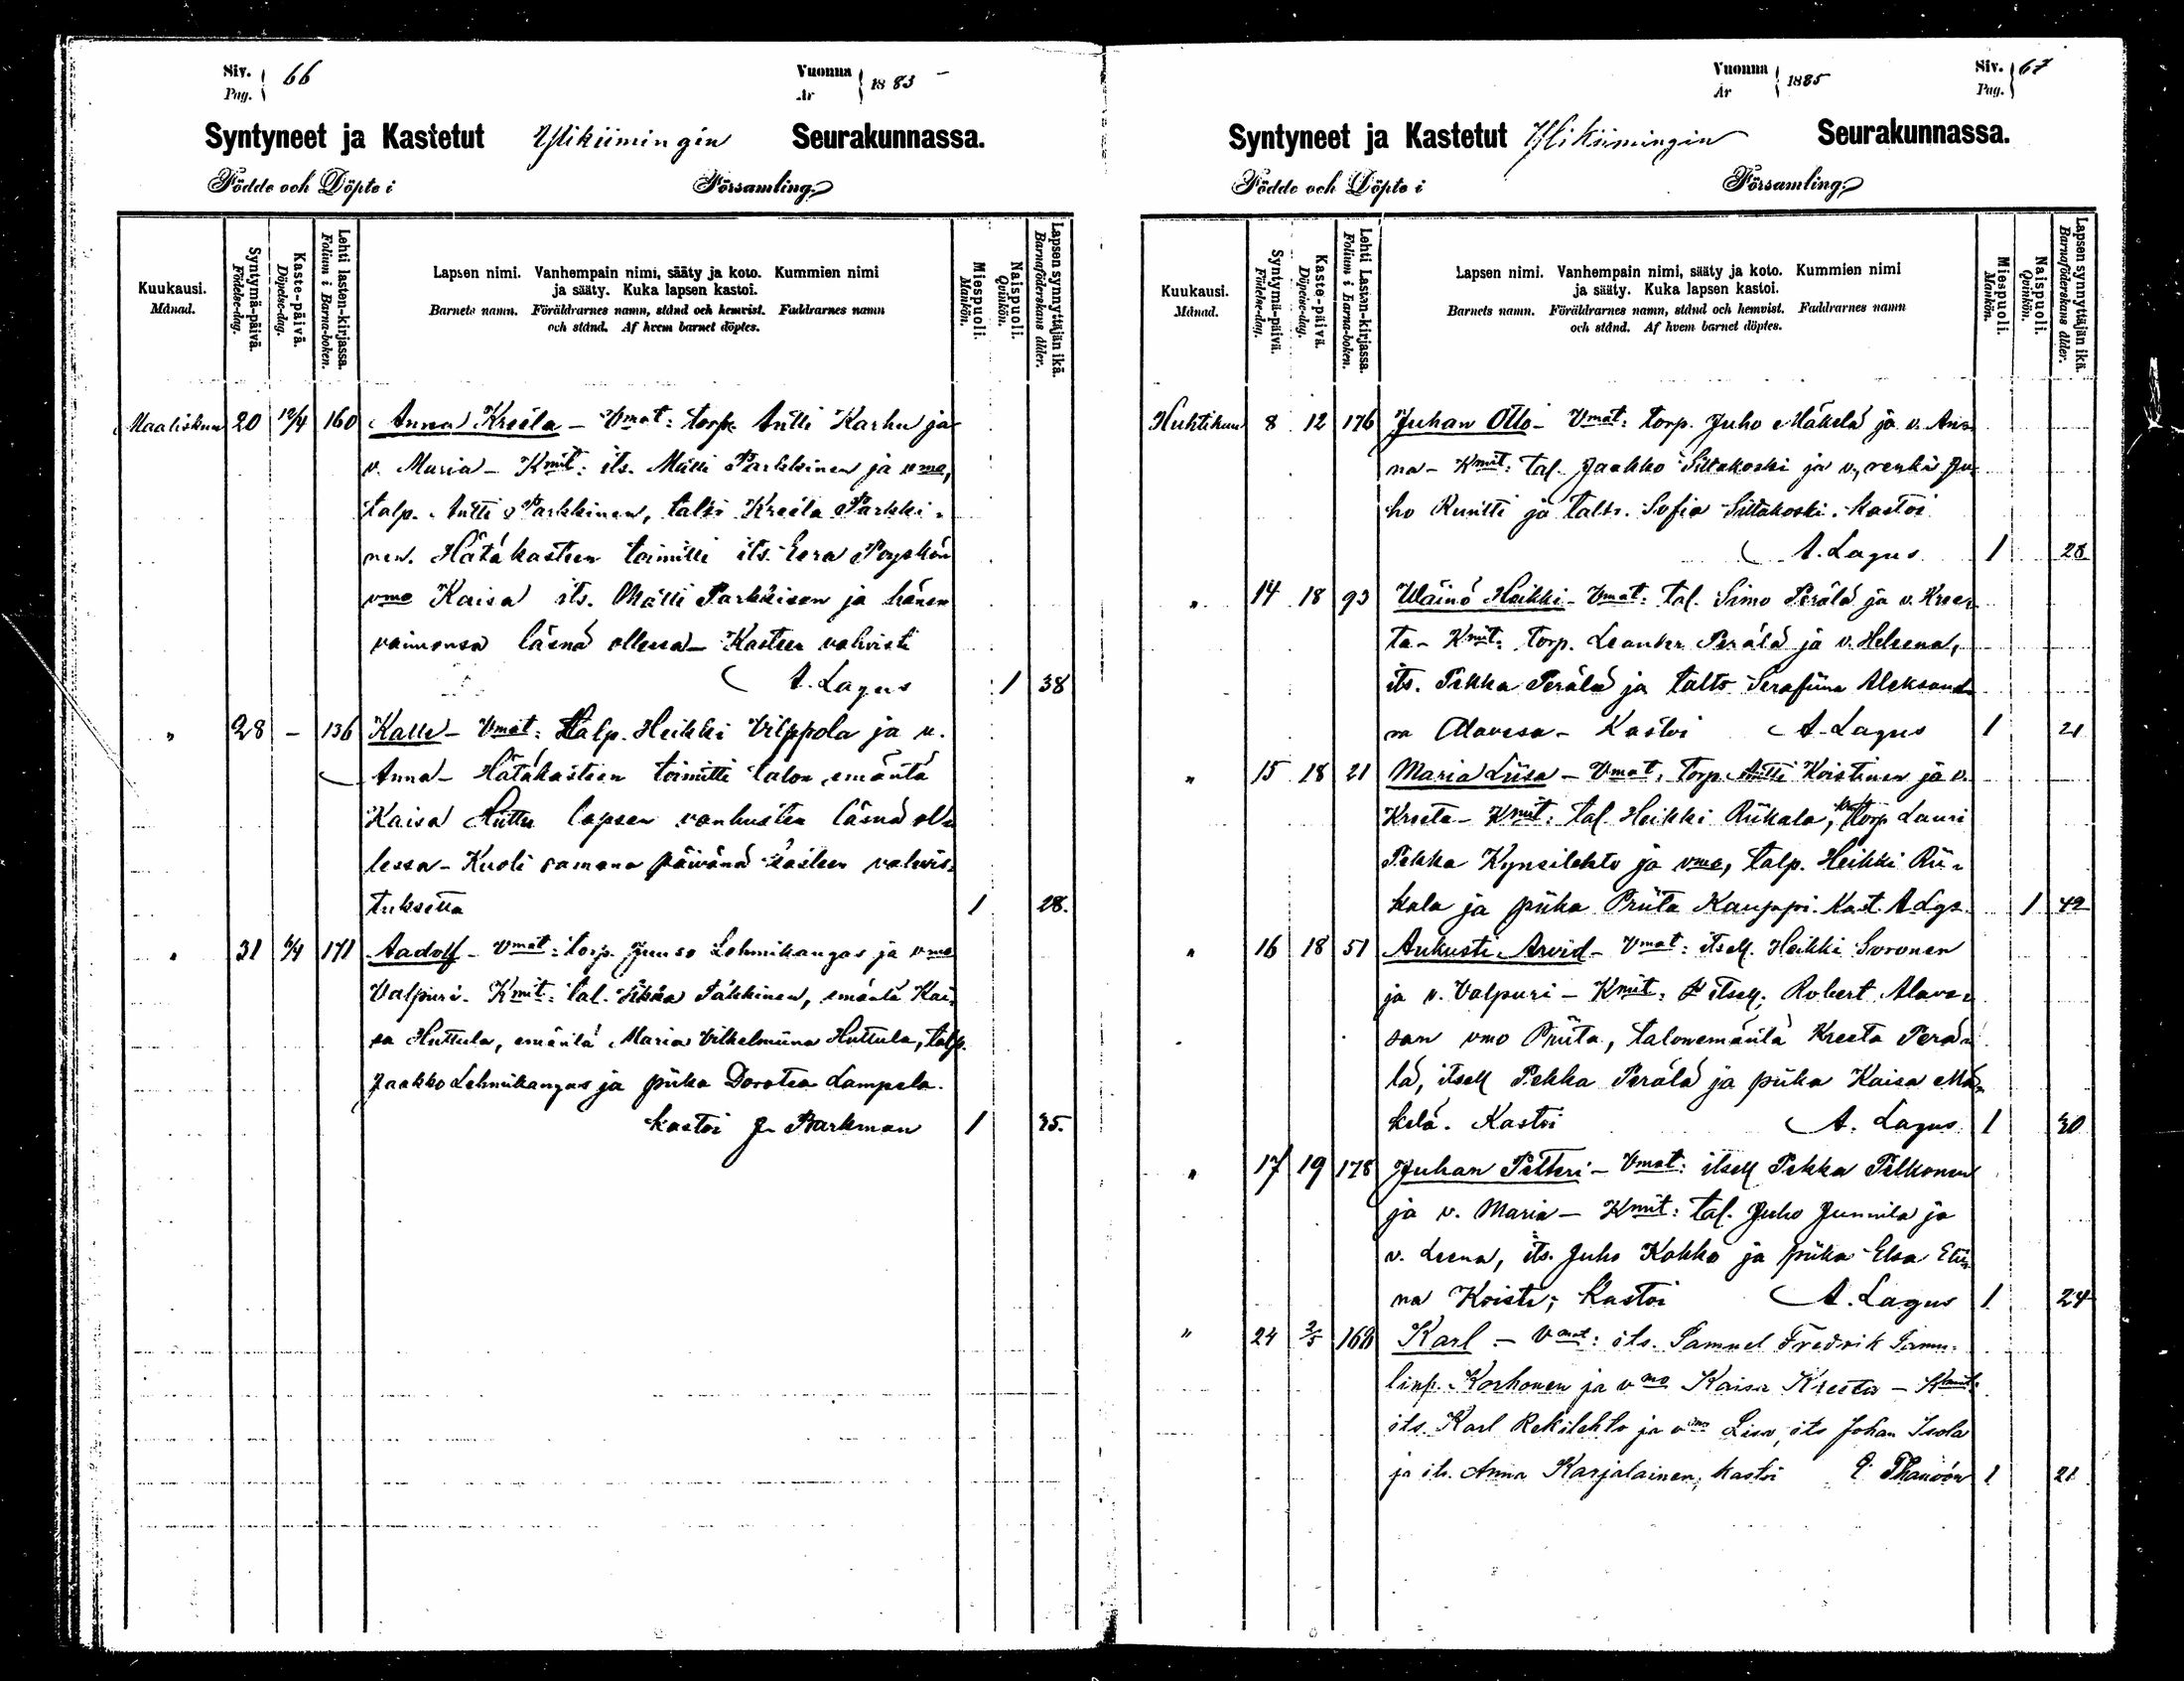 Siv. 66
Pag.
Vuonna 1885
År
Syntyneet ja Kastetut Ylikiimingin Seurakunnassa.
Födde och Döpte i Församling.
Kuukausi. Månad.
Syntymä-päivä. Födelse-dag.
Kaste-päivä. Döpelse-dag.
Lehti lasten-kirjassa. Folium i Barna-boken.
Lapsen nimi. Vanhempain nimi, sääty ja koto. Kummien nimi
ja sääty. Kuka lapsen kastoi.
Barnets namn. Föräldrarnes namn, stånd och hemvist. Faddrarnes namn
och stånd. Af hvem barnet döptes.
Miespuoli. Mankön.
Naispuoli. Qvinkön.
Lapsen synnyttäjän ikä. Barnaföderskans ålder.
Maaliskuu 20 12/4 160 Anna Kreeta - Vmat: torp. Antti Karhu ja
v. Maria - Kmit: its. Matti Parkkinen ja vmo,
talp. Antti Parkkinen, talts Kreeta Parkki-
nen. Hätäkasteen toimitti its. Esra
vmo Kaisa its. Matti Parkkisen ja hänen
vaimonsa läsnä ollessa - Kasteen vahvisti
A. Lagus 1 38
" 28 - 136 Kalle - Vmat: talp. Heikki Vilppola ja v.
Anna - Hätäkasteen toimitti talon emäntä
Kaisa Huttu lapsen vanhusten läsnä ol-
lessa - Kuoli samana päivänä kasteen vahvis-
tuksetta 1 28.
" 31 6/4 171 Aadolf - Vmat: torp. Juuso Lehmikangas ja vmo
Valpuri. Kmit: tal. Päkkinen, emäntä Kai-
sa Huttula, emäntä Maria Vilhelmiina Huttula, talp.
Jaakko Lehmikangas ja piika Dorotea Lampela.
kastoi J. Barkman 1 35.
Vuonna 1885
År
Siv. 67
Pag.
Syntyneet ja Kastetut Ylikiimingin Seurakunnassa.
Födde och Döpte i Församling.
Kuukausi. Månad.
Syntymä-päivä. Födelse-dag.
Kaste-päivä. Döpelse-dag.
Lehti Lasten-kirjassa. Folium i Barna-boken.
Lapsen nimi. Vanhempain nimi, sääty ja koto. Kummien nimi
ja sääty. Kuka lapsen kastoi.
Barnets namn. Föräldrarnes namn, stånd och hemvist. Faddrarnes namn
och stånd. Af hvem barnet döptes.
Miespuoli. Mankön.
Naispuoli. Qvinkön.
Lapsen synnyttäjän ikä. Barnaföderskans ålder.
Huhtikuu 8 12 176 Juhan Otto - Vmat: torp. Juho Mäkelä ja v. An-
na - Kmit: tal. Jaakko Siltakoski ja v., renki Ju-
ho Runtti ja talts. Sofia Siltakoski. Kastoi
A. Lagus 1 28
" 14 18 93 Wäinö Heikki - Vmat: tal. Simo Perälä ja v. Kree-
ta - Kmit: torp. Leander Perälä ja v. Helena,
its. Pekka Perälä ja talts Serafiina Aleksand-
ra Alavesa - Kastoi A. Lagus 1 21
" 15 18 21 Maria Liisa - Vmat: torp. Antti Koistinen ja v.
Kreeta - Kmit: tal. Heikki Riikala, torp Lauri
Pekka Kynsilehto ja vmo, talp. Heikki Rii-
kala ja piika Priita Kauppi. Kast. A Lgs. 1 42
" 16 18 51 Aukusti Arvid - Vmat: itsell. Heikki Soronen
ja v. Valpuri - Kmit: itsell. Robert Alave-
san vmo Priita, talonemäntä Kreeta Perä-
lä, itsell Pekka Perälä ja piika Kaisa Mä-
kelä. Kastoi A. Lagus 1 30
" 17 19 178 Juhan Petteri - Vmat: itsell Pekka Pelkonen
ja v. Maria - Kmit: tal. Juho Junnila ja
v. Leena, its. Juho Kokko ja piika Elsa Etii-
na Koisti; Kastoi A. Lagus 1 24
" 24 2/5 168 Karl - Vmat: its. Samuel Fredrik Samu-
linp. Korhonen ja vmo Kaisa Kreeta - Kmit:
its. Karl Rekilehto ja vmo Lisa, its Johan Isola
ja its. Anna Karjalainen; kastoi 1 21